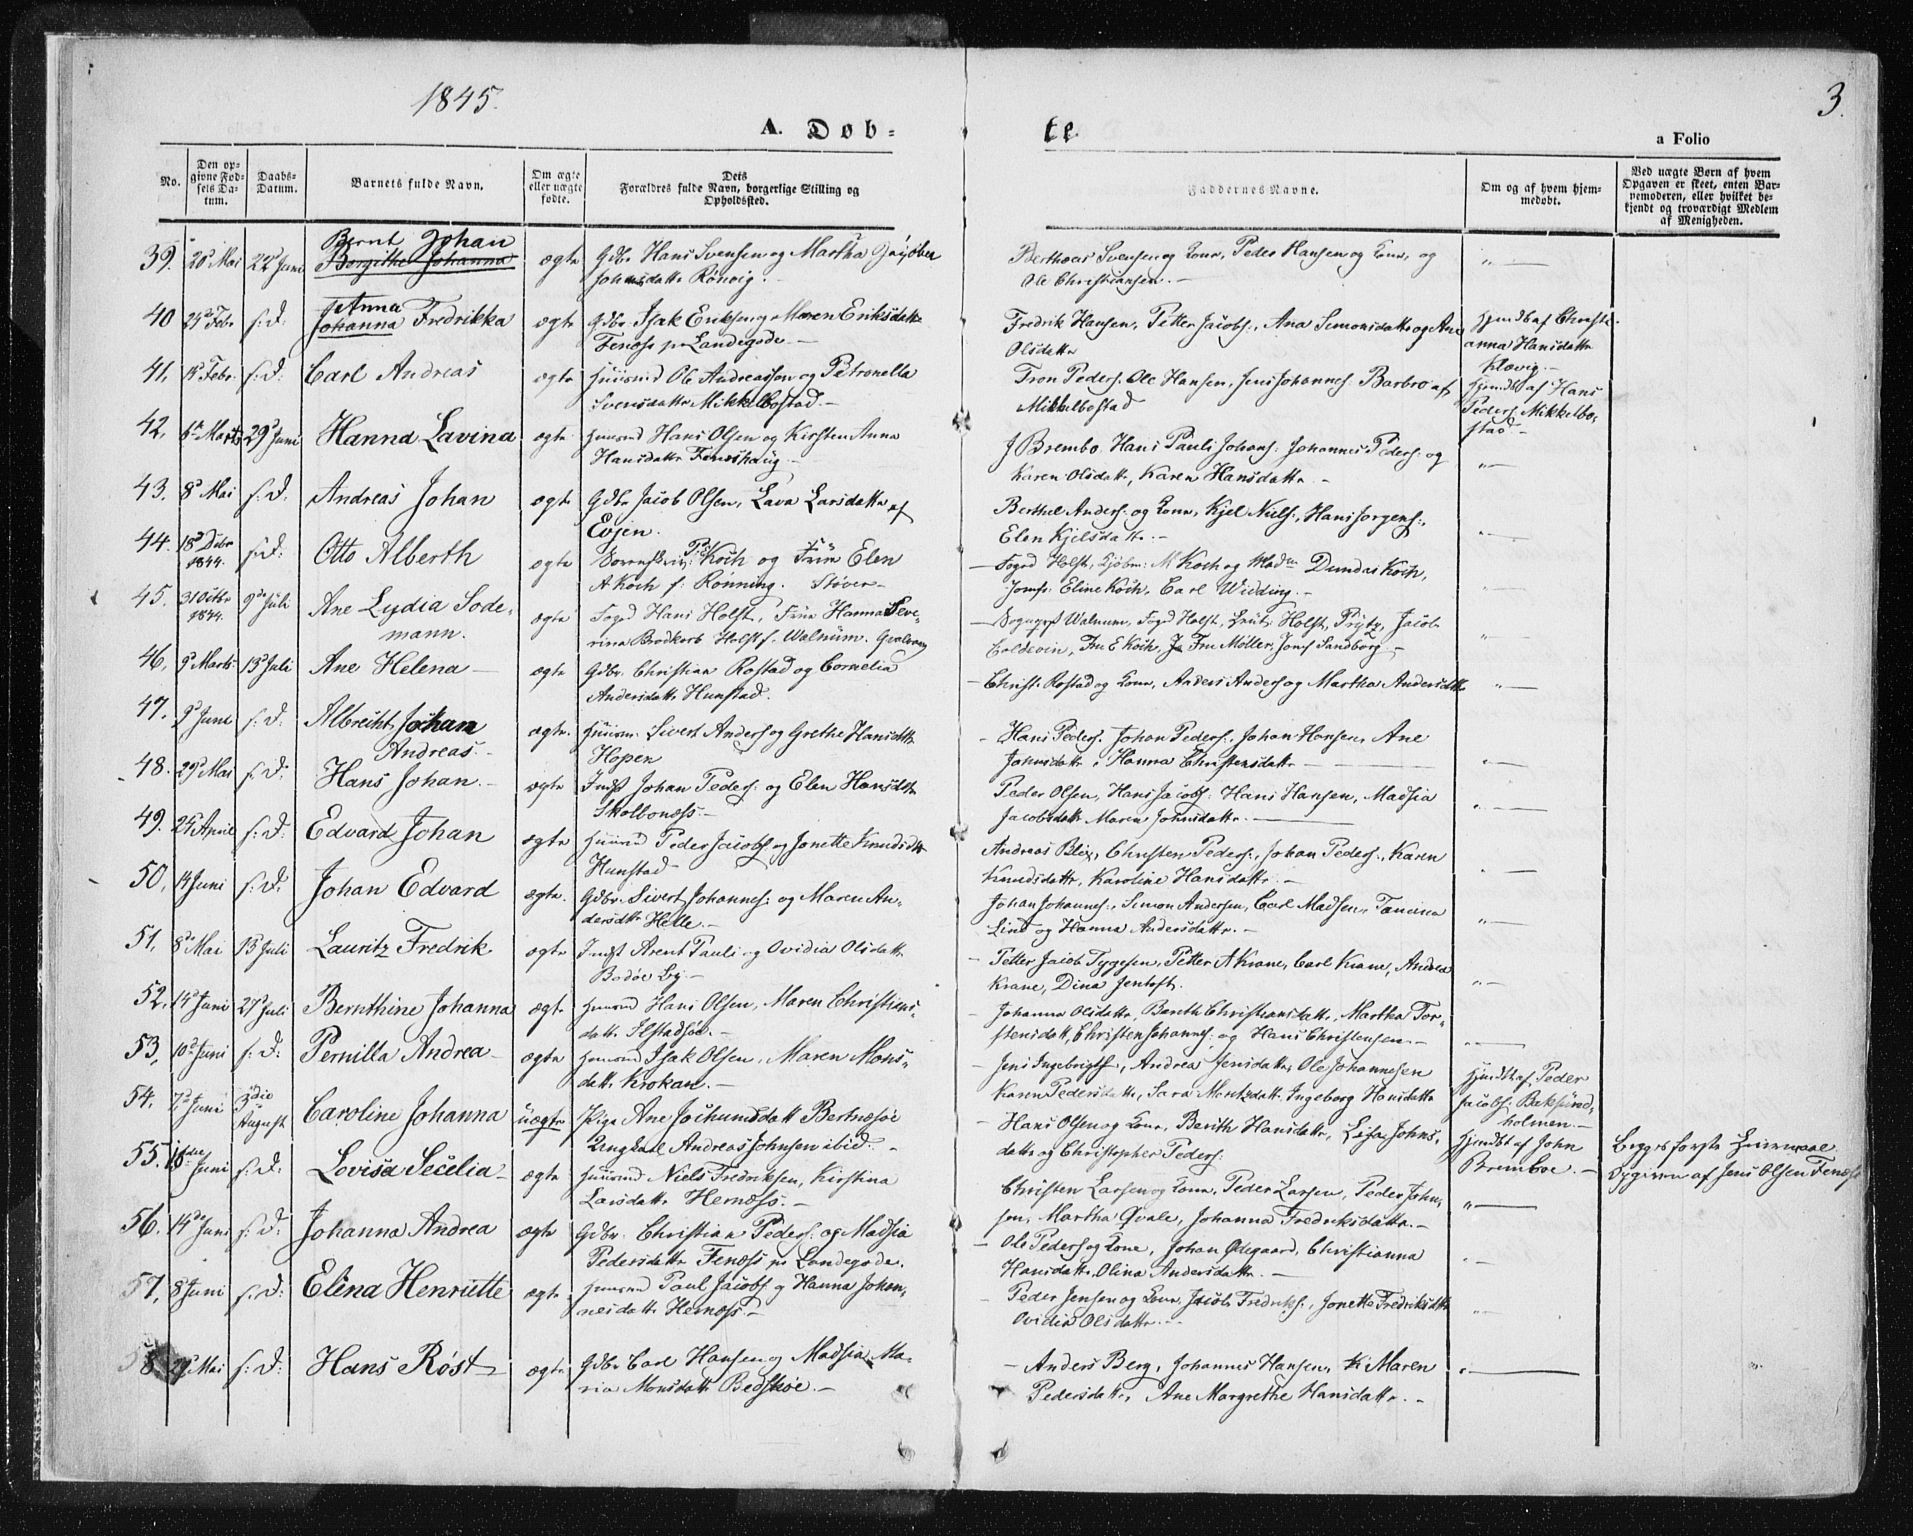 1845.
3.
A. Døb-
te
a Folio
No.
Den opgivne Fødsels Datum.
Daabs-Datum.
Barnets fulde Navn.
Om ægte eller uægte fødte.
Dets Forældres fulde Navn, borgerlige Stilling og Opholdssted.
Faddernes Navne.
Om og af hvem hjemmedøbt.
Ved uægte Børn af hvem Opgaven er skeet, enten Barnemoderen, eller hvilket bekjendt og troværdigt Medlem af Menigheden.
Bernt Johan
39. 20 Mai 22 Juni Bergithe Johanna ægte Gdbr Hans Svensen og Martha
Johnsdatter Rønvig.
Berthæus Svensen og Kone, Peder Hansen og Kone, og
Ole Christiansen.
Anna
40 24 Febr s: D: Johanna Fredrikka ægte Gdbr. Isak Eriksen og Maren Eriksdatter
Fenæss pr Landegode.
Fredrik Hansen, Petter Jacobs:, Ana Simonsdatter og Ane
Olsdatter
Hjemdbt af Christi-
anna Hansdatter
41. Febr. s: D: Carl Andreas ægte Huusmd Ole Andreassen og Petronella
Svensdatter Mikkelbostad.
Tron Peders: Ole Hansen, Jens Johannes: Barbro af
Mikkelbostad
Hjemdbt af Hans
Peders: Mikkelbo-
stad
42. 6 Marts 29 Juni Hanna Lavina ægte Huusmd Hans Olsen og Kirsten Anna
Hansdatter Feneshaug
J Brembo Hans Pauli Johans: Johannes Peders: og
Karen Olsdatter, Karen Hansdatter.
43. 8 Mai s: D. Andreas Johan ægte Gdbr Jacob Olsen, Lava Larsdatter af
Evjen.
Berthel Anders: og Kone, Kjel Niels:, Hans Jørgens:,
Elen Kjelsdatter.
44. 18 Decbr 1844. s: D: Otto Alberth ægte Koch og Frue Elen
A Koch f: Rønning. Støver
Foged Holst, Kjøbm: M Koch og Madm Dundas Koch,
Jomf: Eline Koch, Carl Widding.
45. 31 Octbr 1844. 9 Juli Ane Lydia Sode-
mann. ægte Foged Hans Holst, Frue Hanna Seve-
rina Brodkorb Holst f. Walnum.
Sogneprst Walnum, Foged Holst, Holst, Prytz, Jacob
Coldevin, Fru E Koch, Fru Møller, Jomf Sandborg.
46, 9 Marts 13 Juli Ane Helena ægte Gdbr. Christian Rostad og Cornelia
Andersdatter Hunstad.
Christ: Rostad og Kone, Anders Anders og Martha Andersdatter
47. 9 Juni s: D: Albrecht Johan
Andreas ægte. Huusm. Sivert Anders og Grethe Hansdatter
Hopen
Hans Peders: Johan Peders: Johan Hansen, Ane
Johnsdatter, Hanna Christensdatter
48. 29 Mai s: D: Hans Johan. ægte Indst Johan Peders: og Elen Hansdtr
Skolbonæss.
Peder Olsen, Hans Jacobs: Hans Hansen, Madsia
Jacobsdatter Maren Johnsdatter.
49. 24 April s: D: Edvard Johan ægte Huusmd Peder Jacobs og Jonette Knudsdtr
Hunstad
Andreas Blix, Christen Peders:, Johan Peders:, Karen
Knudsdatter, Karoline Hansdatter.
50. 14 Juni s: D. Johan Edvard ægte. Gdbr. Sivert Johannes: og Maren An-
dersdtr Helle.
Johan Johannes:, Simon Andersen, Carl Madsen,
Lind og Hanna Andersdatter.
51. 8 Mai 13 Juli Lauritz Fredrik ægte Indst Arent Pauli og Ovidia Olsdatter
Bodøe By.
Petter Jacob Tygesen, Petter A Krane, Carl Krane, Andrea
Krane, Dina Jentoft.
52. 14 Juni 27 Juli Bernthine Johanna ægte Huusmd Hans Olsen, Maren Christens-
datter
Johanna Olsdatter, Bereth Christiansdatter, Martha Tor-
stensdatter, Christen Johannes: og Hans Christensen.
53. 10 Juni s: D: Pernilla Andrea ægte Huusmd Isak Olsen, Maren Mons-
datter Krokan.
Jens Ingebrigts, Andrea Jensdatter, Ole Johannesen
Karen Pedersdatter, Sara Montzdatter Ingeborg Hansdatter
54. 7 Juni 3die August Caroline Johanna uægte Pige Ane Jochumsdatter Bertnæsøe
Ungkarl Andreas Johnsen ibid.
Hans Olsen og Kone, Berith Hansdatter, Lisa Johns-
datter og Christopher Peders:
Hjemdbt af Peder
Jacobs: Baksund-
holmen.
Begges første Leiermaal
Opgiven af Jens Olsen Fenæss
55. 16den Juni s: D: Lovisa Secelia ægte Huusmd Niels Fredriksen, Kirstina
Larsdatter Hernæss.
Christen Larsen og Kone, Peder Larsen, Peder John-
sen, Martha Qvale, Johanna Fredriksdatter.
Hjemdbt af John
Bremboe.
56. 14de Juni s: D: Johanna Andrea ægte Gdbr. Christian Peders: og Madsia
Pedersdatter Fenæss pr Landegode.
Ole Peders og Kone, Johan Ødegaard, Christianna
Hansdatter, Olina Andersdatter.
57. 8 Juni s: D: Elena Henriette ægte Huusmd Paul Jacobs og Hanna Johan-
nesdatter Hernæss.
Peder Jensen og Kone, Jacob Fredriks:, Jonette Fredriksdatter
Ovidia Olsdatter.
58 29 Mai s: D: Hans Røst ægte Gdbr Carl Hansen og Madsia Ma-
ria Monsdatter Bedskøe.
Anders Berg, Johannes Hansen, K Maren
Pedersdatter, Ane Margrethe Hansdatter.